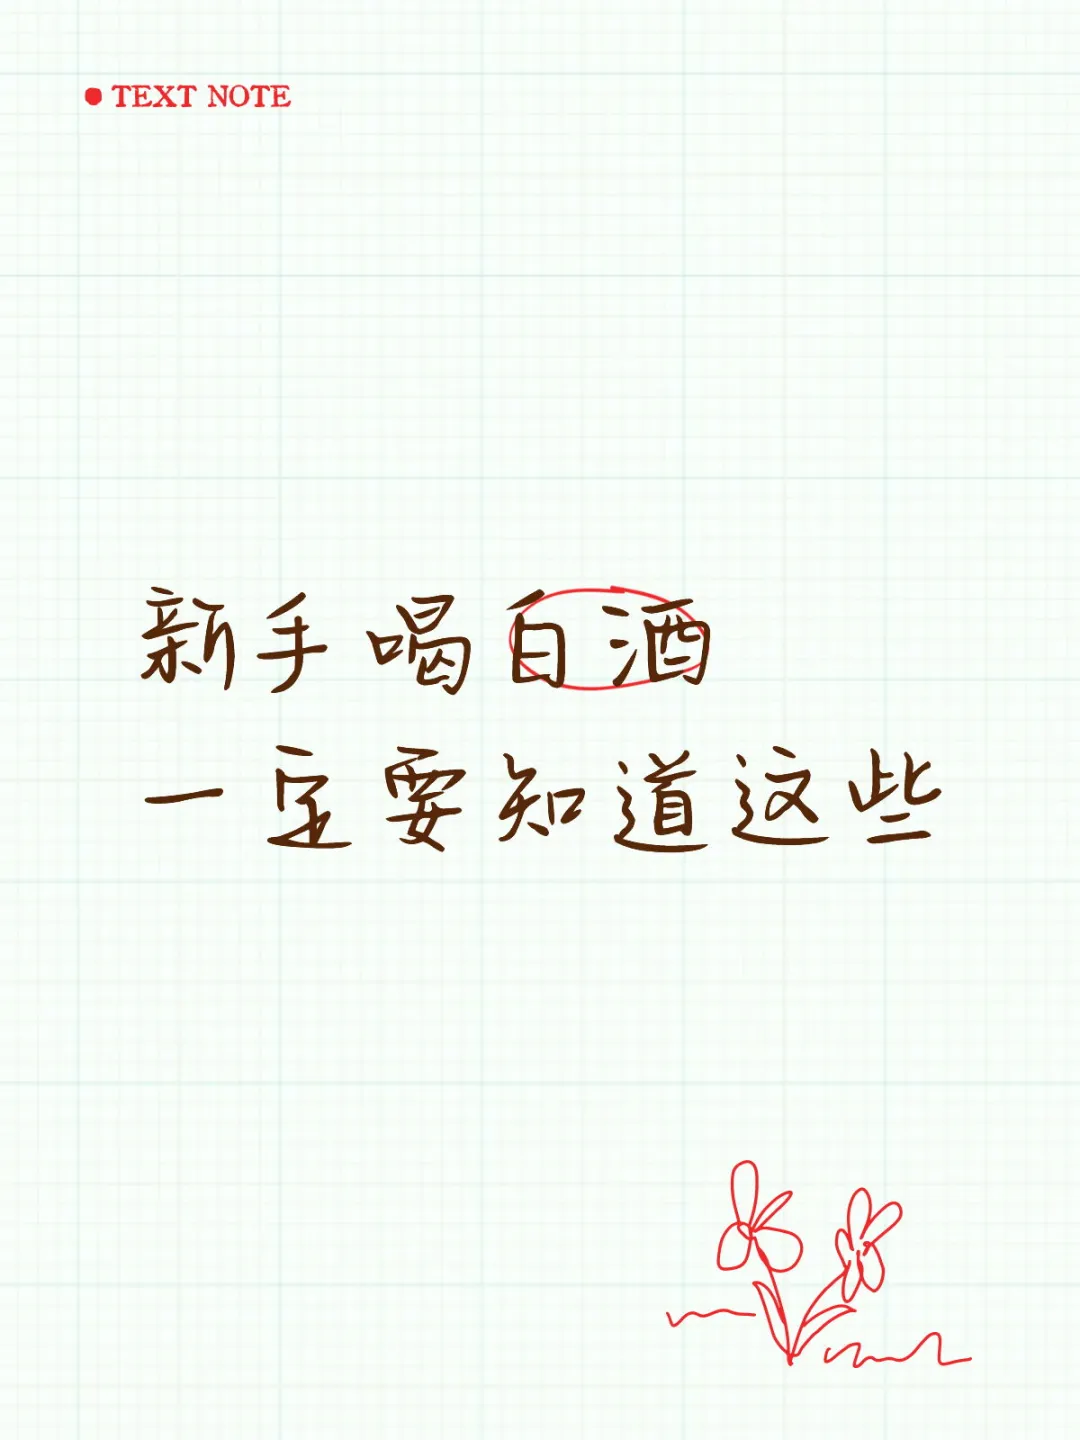 TEXT NOTE
新手喝白酒
一定要知道这些